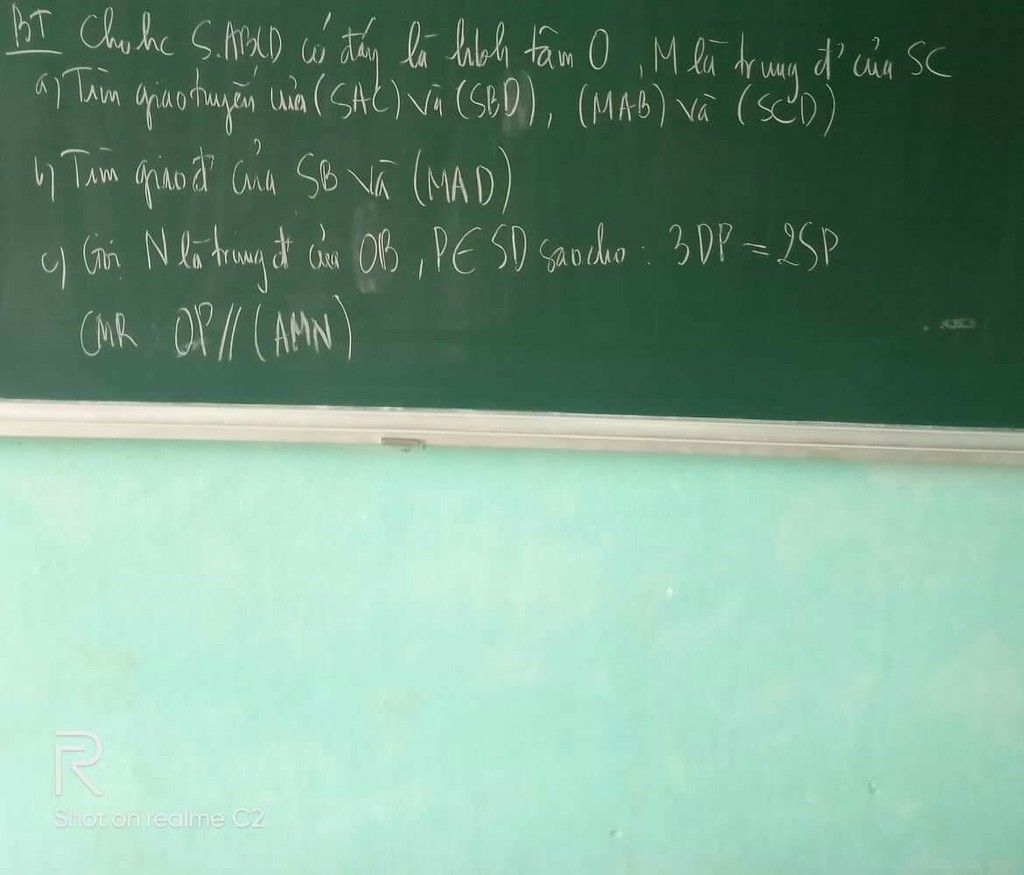 BT Cho hc S.ABCD có đáy là hbh tâm O, M là trung đ' của SC
a) Tìm giao tuyến của (SAC) và (SBD), (MAB) và (SCD)
b) Tìm giao đ' của SB và (MAD)
c) Gọi N là trung đ' của OB, P∈ SD sao cho: 3DP = 2SP
CMR OP // (AMN)
R
Shot on realme C2